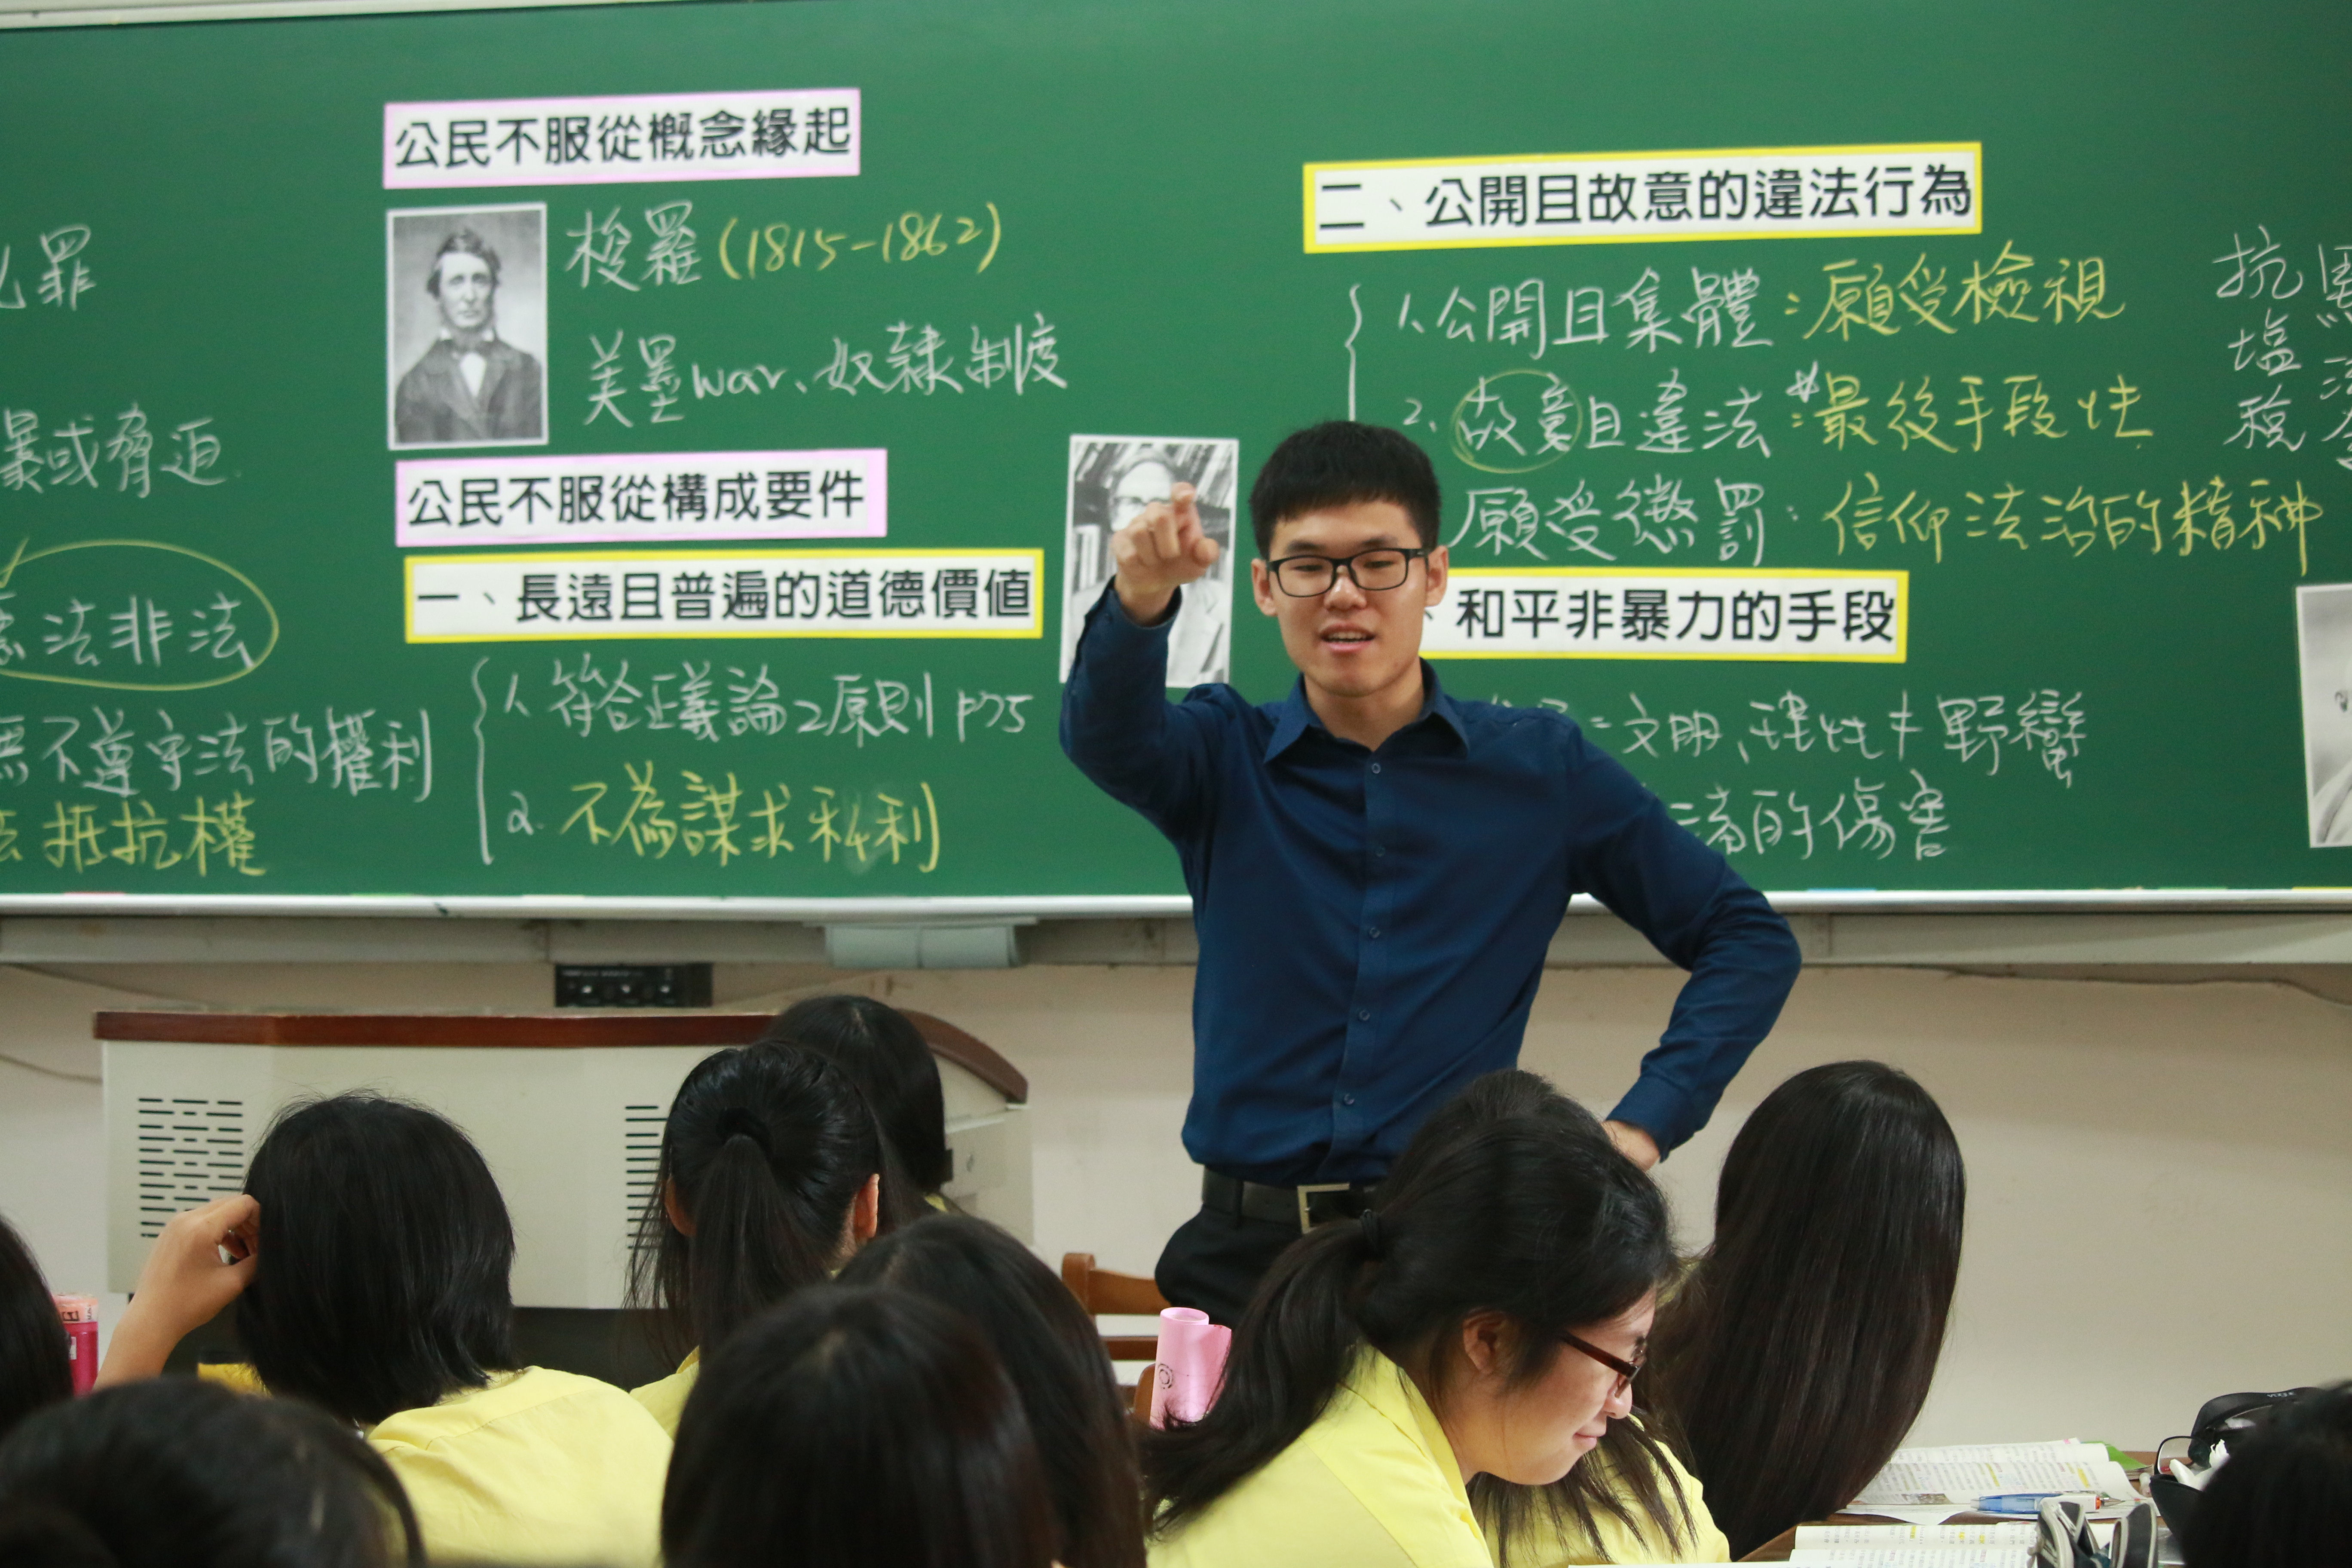 罪
暴或脅迫
法非法
不遵守法的權利
抵抗權
公民不服從概念緣起
梭羅(1815-1862)
美墨war、奴隸制度
公民不服從構成要件
一、長遠且普遍的道德價值
1、符合正義論2原則 P75
2.不為謀求私利
二、公開且故意的違法行為
1、公開且集體:願受檢視
2、故意且違法:最後手段性
願受懲罰:信仰法治的精神
、和平非暴力的手段
=文明、理性≠野蠻
的傷害
抗
塩
稅